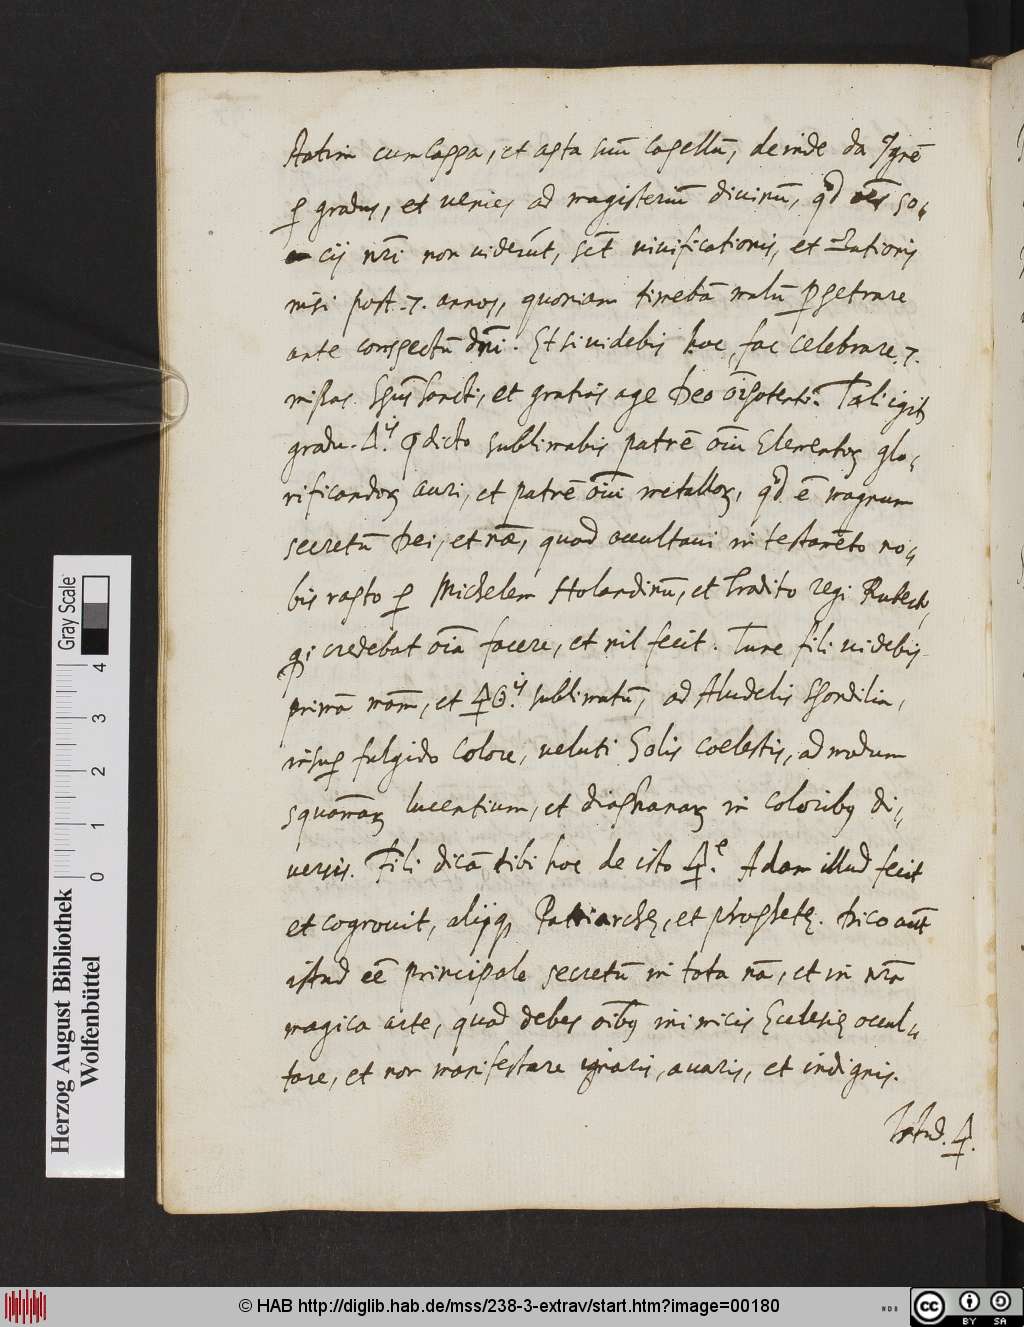 statim cum cappa, et apta suũ capellũ, deinde da Ignẽ
ꝑ gradus, et venies ad magisteriũ divinũ, qd oẽs so-
cij nr̃i non viderũt, sct̃ vivificationis, et
nisi post .7. annos, quoniam timebã malũ ꝑpetrare
ante conspectũ dñi. Et si videbis hoc, fac celebrare .7.
missas Spũs sancti, et gratias age Deo oĩpotenti. Tali igit̃
gradu 🜍ij p̃dicto sublimabis patrẽ oĩu Elementoꝝ glo-
rificandoꝝ auri, et patrẽ oĩu metalloꝝ, qd ẽ magnum
secretũ Dei, et nãe, quod occultavi in testamẽto no-
bis rapto ꝑ Michelem Holandinũ, et tradito regi Rubech,
qi credebat oĩa facere, et nil fecit. Tunc fili videbis
primã mãm, et 🜍 ij sublimatũ, ad Aludelis spondilia,
insuꝑ fulgido colore, veluti Solis coelestis, ad modum
squam̃aꝝ lucentium, et diaphanaꝝ in coloribꝰ di-
versis. Fili dicã tibi hoc de isto 🜍e. Adam illud fecit
et cognovit, alijqꝫ Patriarchę, et prophetę. Dico aũt
istud eẽ principale secretũ in tota nã, et in nr̃a
magica arte, quod debes oĩbꝰ inimicis Ecclesię occul-
tare, et non manifestare ignaris, avaris, et indignis.
Istud 🜍.
Herzog August Bibliothek
Wolfenbüttel
Gray Scale
0 1 2 3 4
© HAB http://diglib.hab.de/mss/238-3-extrav/start.htm?image=00180
NDB
cc BY SA